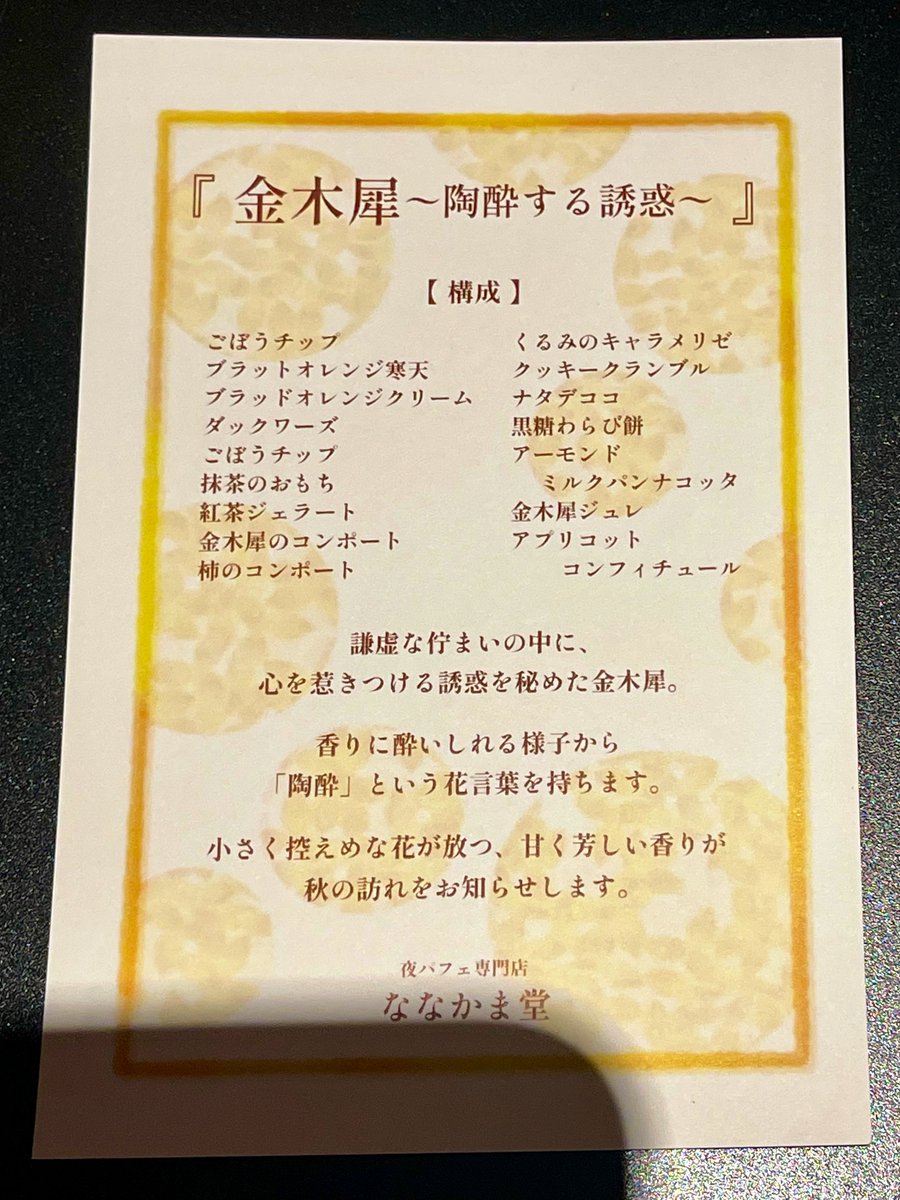 『 金木犀~陶酔する誘惑~ 』
【 構成 】
ごぼうチップ
ブラットオレンジ寒天
ブラッドオレンジクリーム
ダックワーズ
ごぼうチップ
抹茶のおもち
紅茶ジェラート
金木犀のコンポート
柿のコンポート
くるみのキャラメリゼ
クッキークランブル
ナタデココ
黒糖わらび餅
アーモンド
ミルクパンナコッタ
金木犀ジュレ
アプリコット
コンフィチュール
謙虚な佇まいの中に、
心を惹きつける誘惑を秘めた金木犀。
香りに酔いしれる様子から
「陶酔」という花言葉を持ちます。
小さく控えめな花が放つ、甘く芳しい香りが
秋の訪れをお知らせします。
夜パフェ専門店
ななかま堂